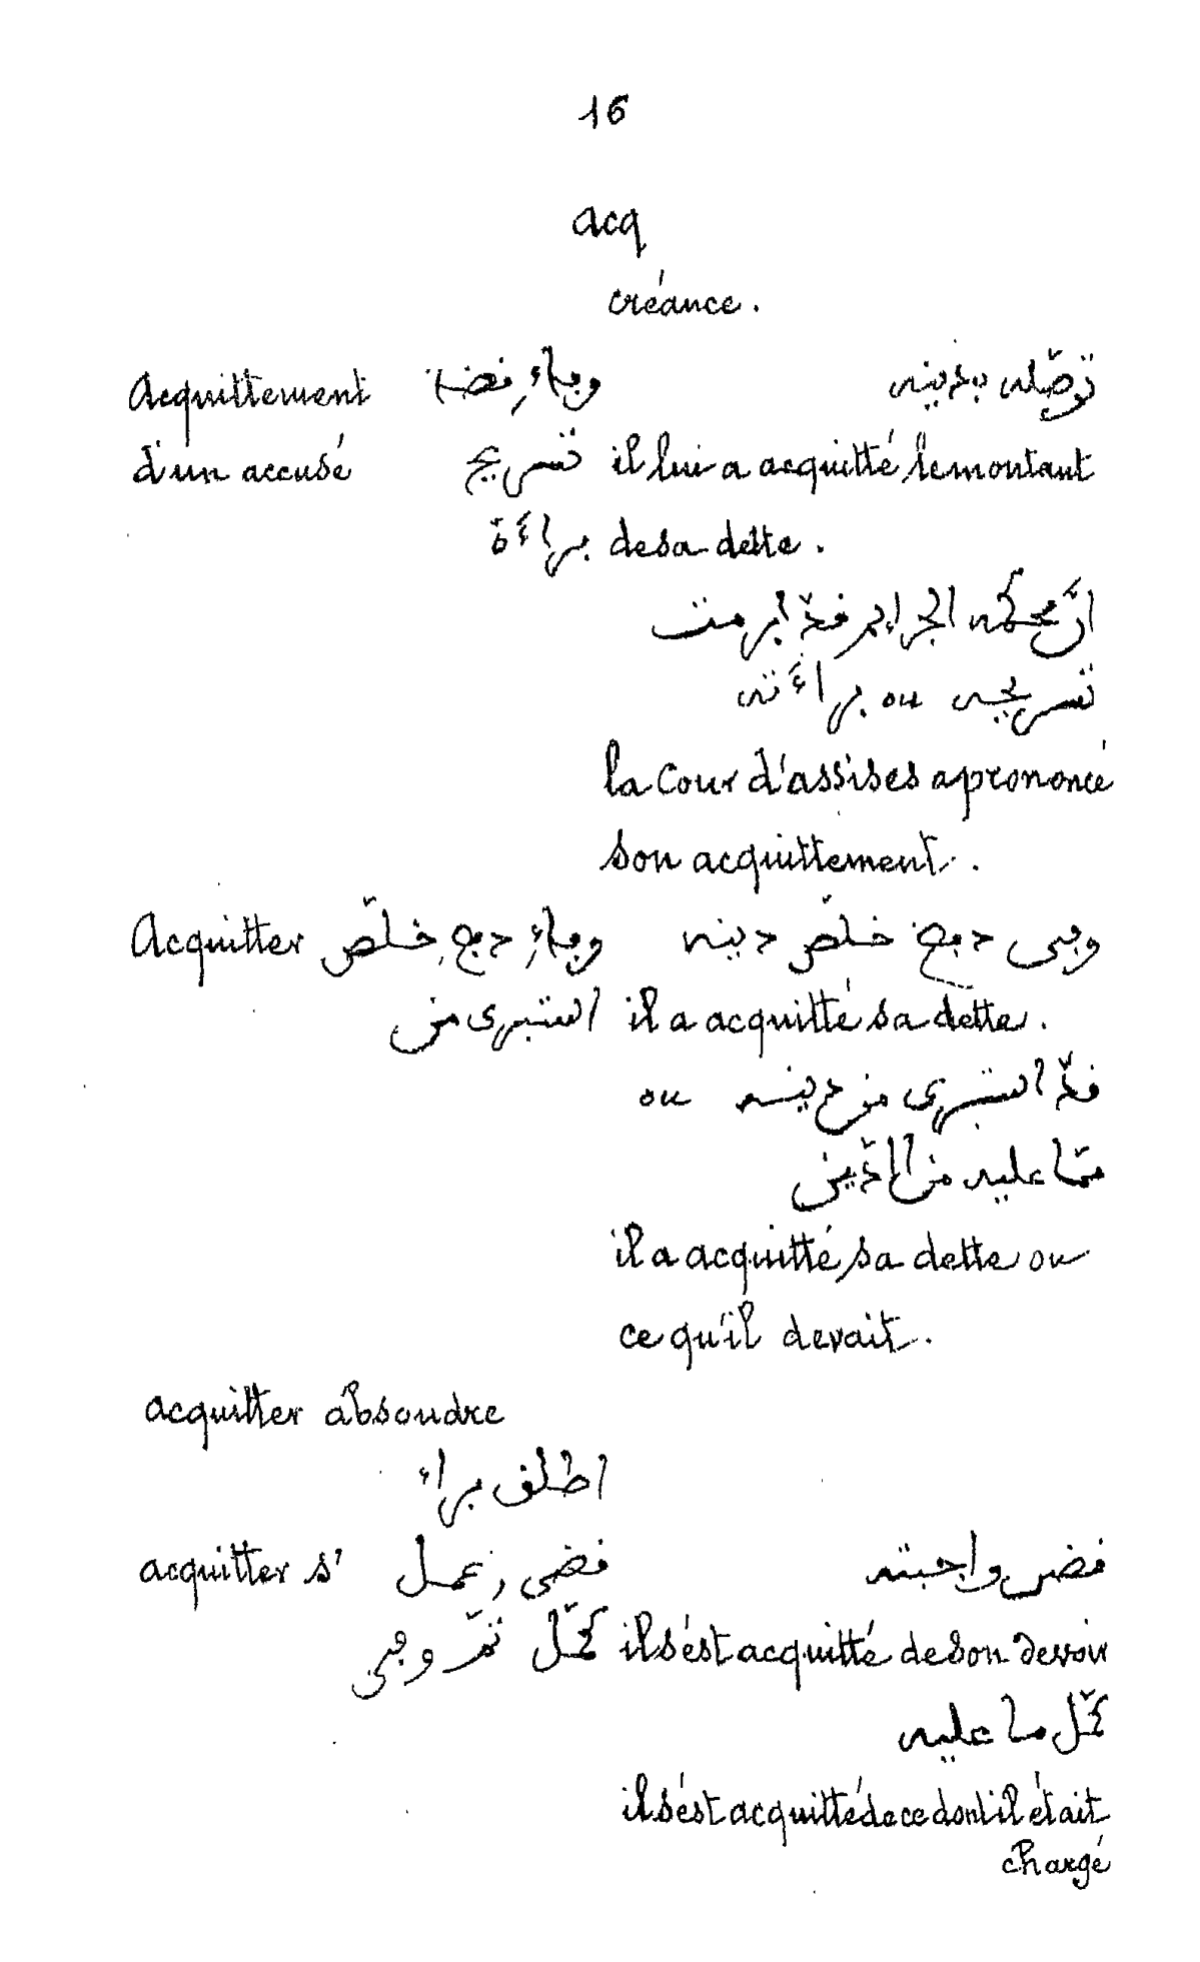 16
acq
créance.
Acquittement وفاءِ قضا توصّله بدينه
d'un accusé تسريح il lui a acquitté le montant
براءَة de sa dette.
انّ محكمه الجرايم قدّ ابرمت
تسريحه ou براءَته
la Cour d'assises a prononcé
son acquittement.
Acquitter وفاءِ دفع, خلّص وفى دفع خلّص دينه
استبرى من il a acquitté sa dette.
قدّ استبرى من دينه ou
ممّا عليه من الدّين
il a acquitté sa dette ou
ce qu'il devait.
acquitter absoudre
اطلق براء
acquitter s' قضى, عمل قضى واجبته
كمّل تمّ وفى il s'est acquitté de son devoir
كمّل ما عليه
il s'est acquitté de ce dont il était
chargé